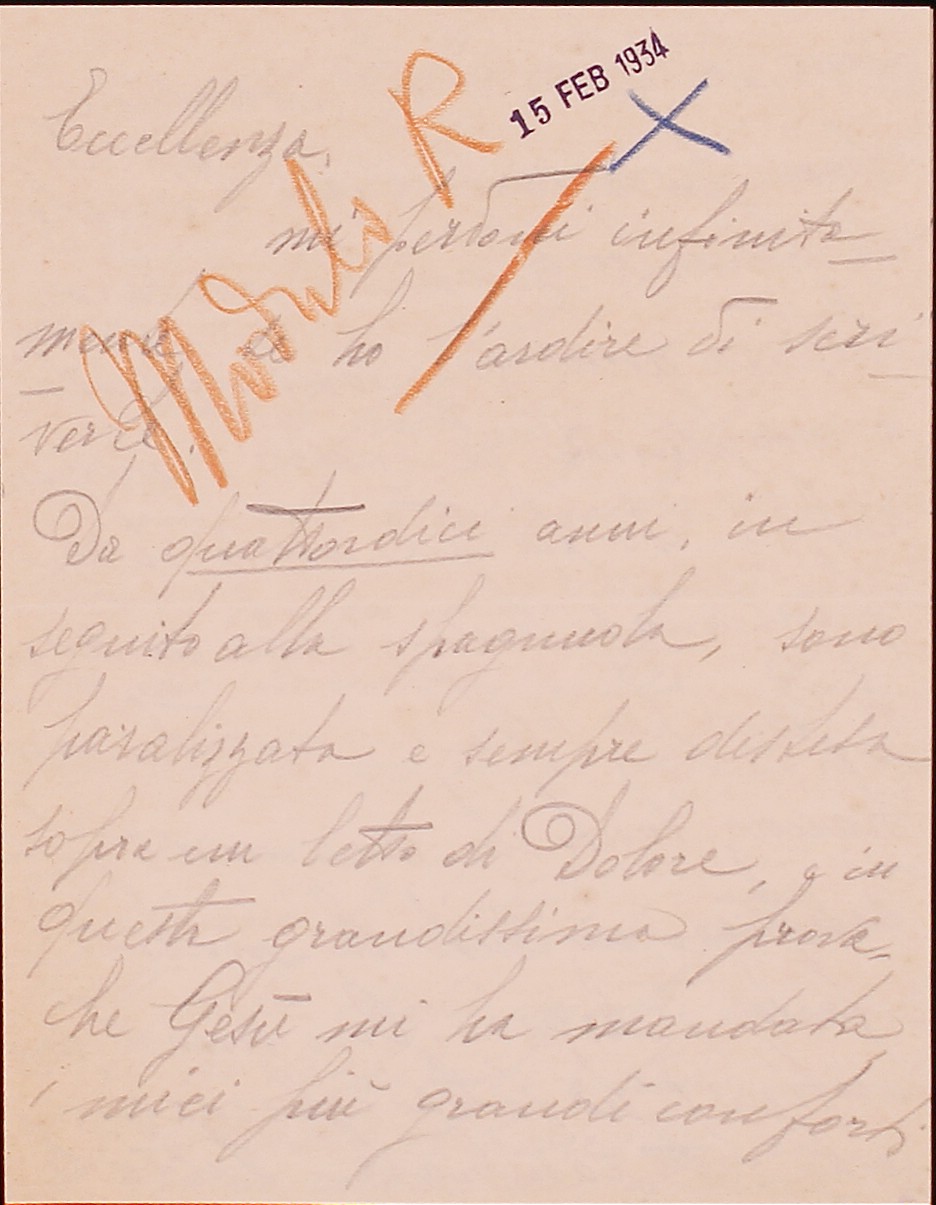 15 FEB 1934
Modulo R
Eccellenza,
mi perdoni infinita-
mente se ho l'ardire di scri-
verLe.
Da quattordici anni, in
seguito alla spagnuola, sono
paralizzata e sempre distesa
sopra un letto di Dolore, e in
questa grandissima prova,
che Gesù mi ha mandata,
i miei più grandi conforti